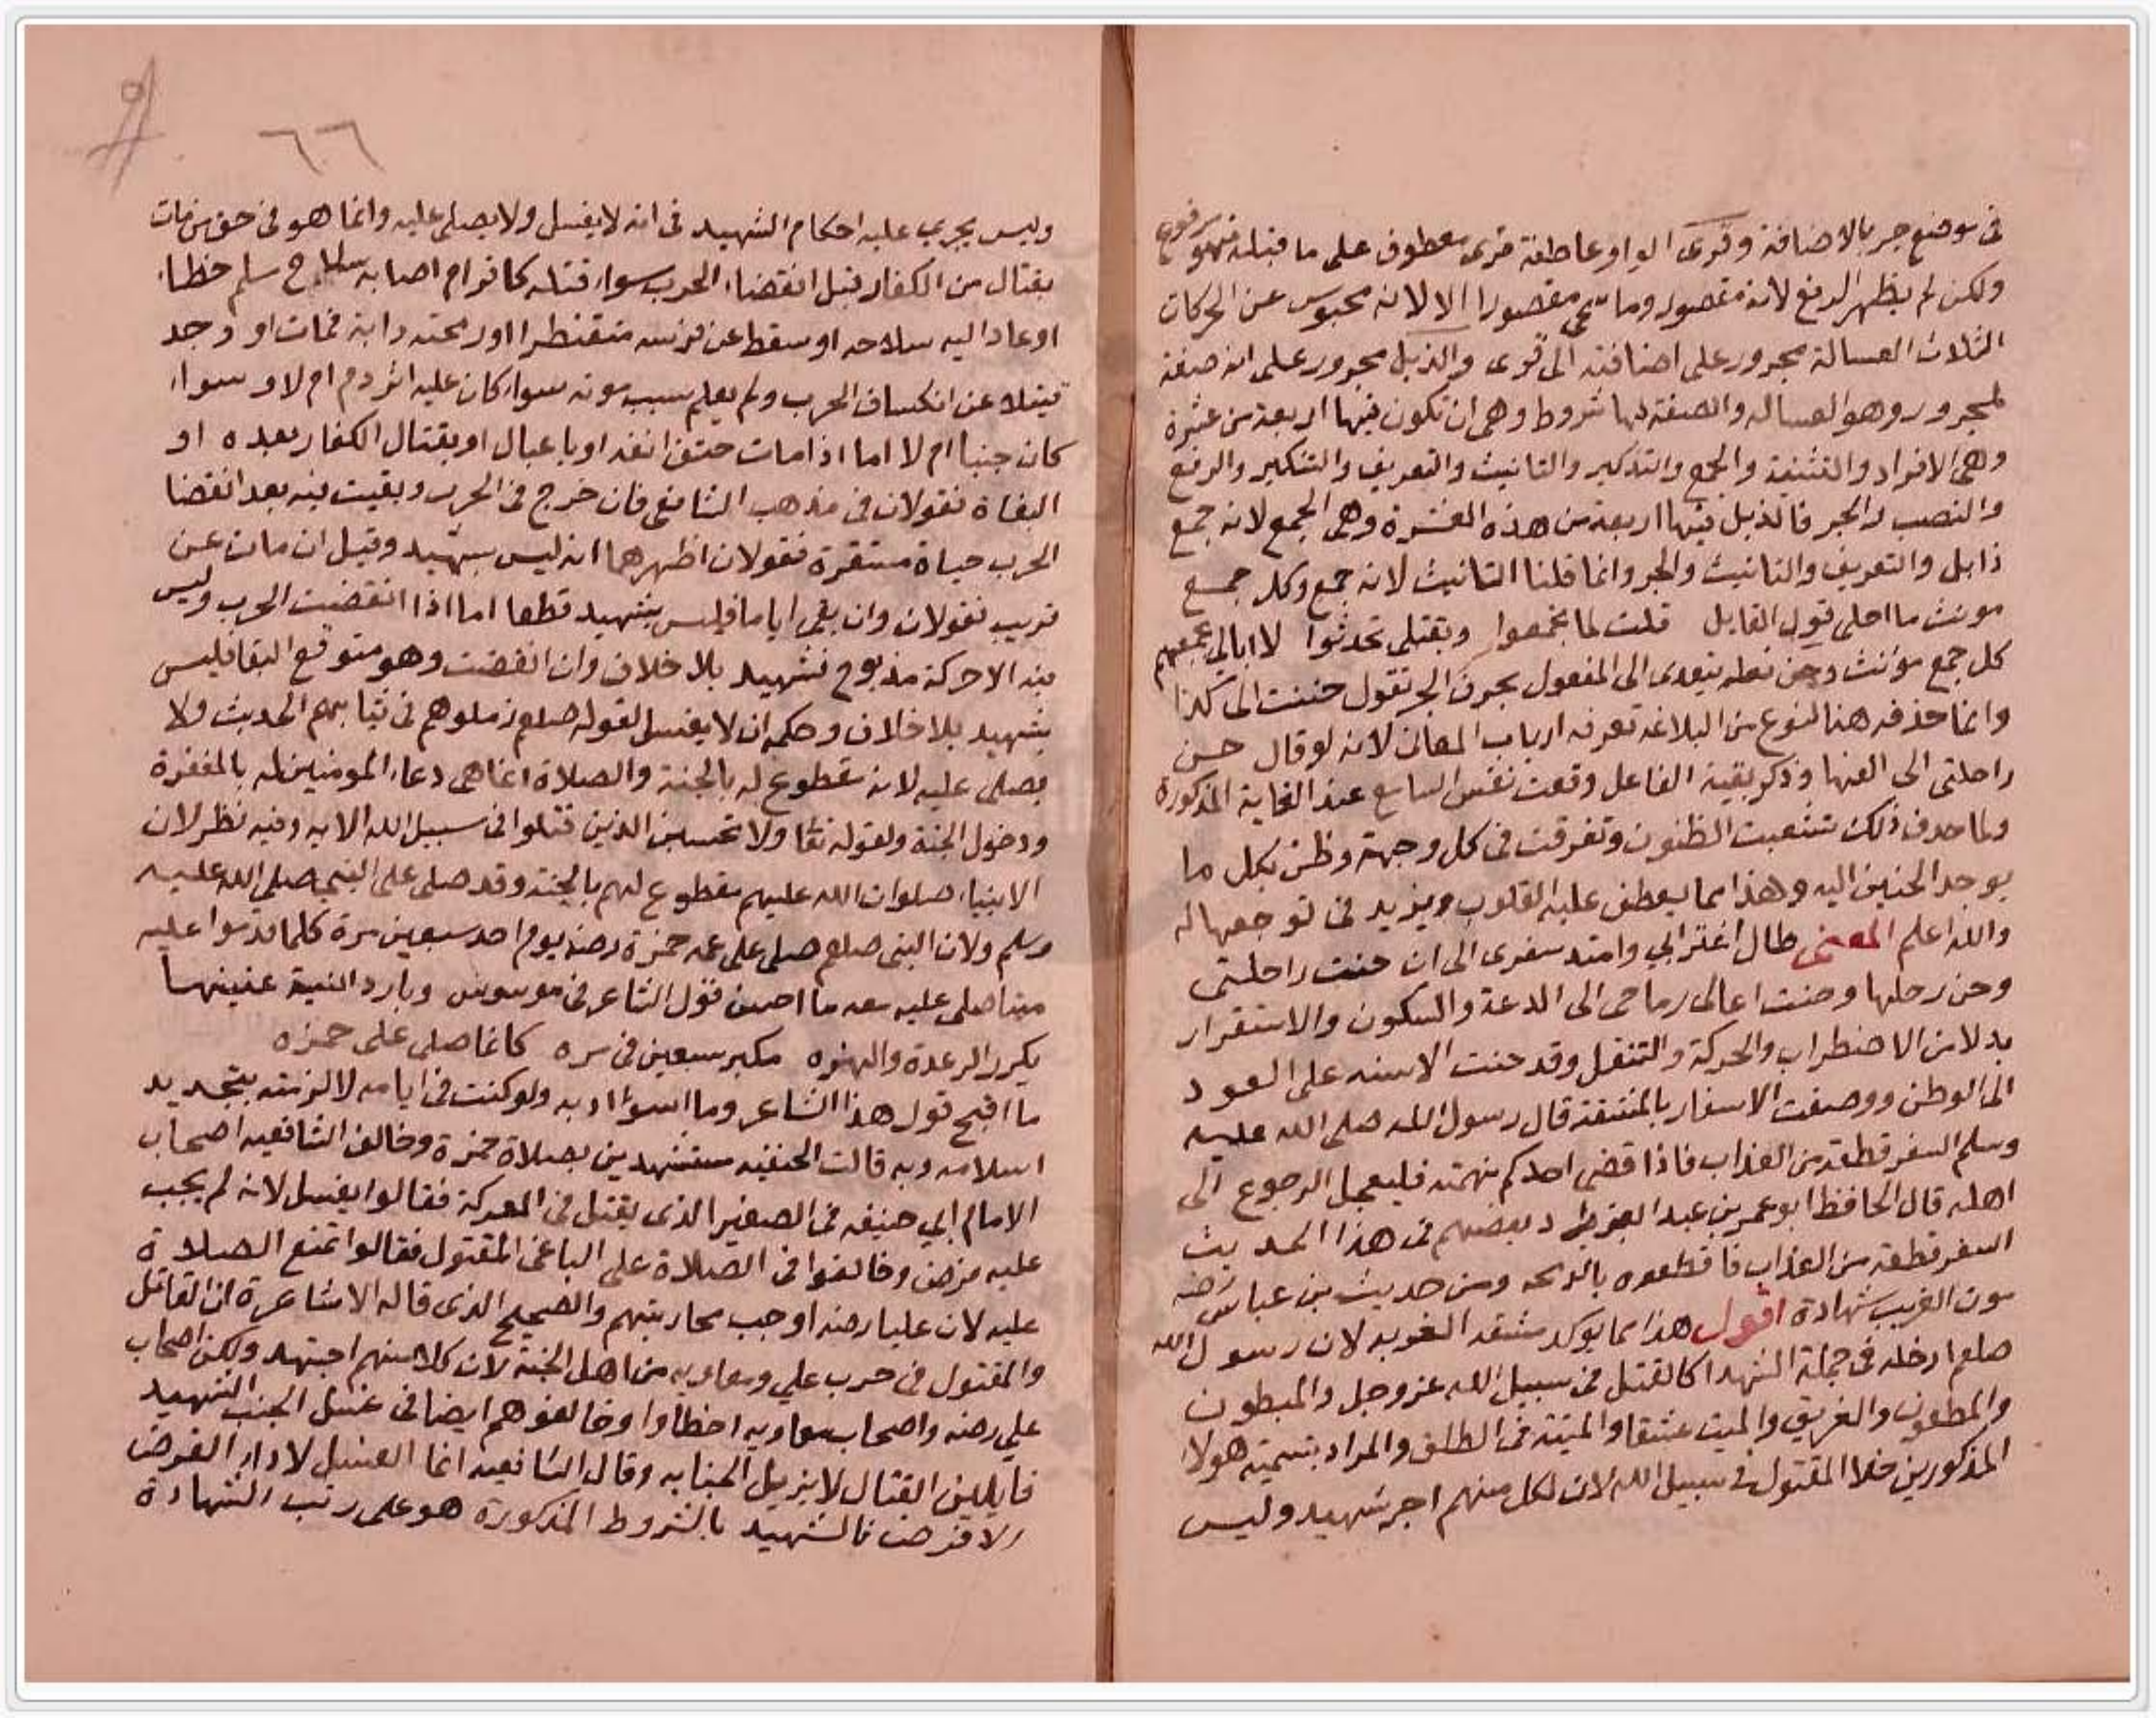 في موضع جر بالاضافة وقرى الواو عاطفة قرى معطوف على ما قبله فهو مرفوع
ولكن لم يظهر الرفع لانه مقصور وما سمى مقصورا الا لانه محبوس عن الحركات
الثلاث العسالة مجرور على اضافته الى قرى والذبل مجرور على انه صفة
لمجرور وهو العساله والصفة لها شروط وهى ان تكون فيها اربعة من عشرة
وهى الافراد والتثنية والجمع والتذكير والتانيث والتعريف والتنكير والرفع
والنصب والجر فالذبل فيها اربعة من هذه العشرة وهى الجمع لانه جمع
ذابل والتعريف والتانيث والجر وانما قلنا التانيث لانه جمع وكل جمع
مونث ما احلى قول القايل قلت لما تجمعوا وبقتلى تحدثوا لا ابالي بجمعهم
كل جمع مؤنث وحن فعله يتعدى الى المفعول بحرف الجر تقول حننت الى كذا
وانما حذفه هنا لنوع من البلاغة تعرفه ارباب المعانى لانه لو قال حن
راحلتى الى الفها وذكر بقية الفاعل وقعت نفس السامع عند الغاية المذكورة
ولما حذف ذلك تشعبت الظنون وتفرقت فى كل وجهة وظن بكل ما
يوجد الحنين اليه وهذا مما يعطف عليه القلوب ويزيد فى توجعها له
والله اعلم المعنى طال اغترابي وامتد سفرى الى ان حنت راحلتى
وحن رحلها وحنت اعالى رماحى الى الدعة والسكون والاستقرار
بدلا من الاضطراب والحركة والتنقل وقد حنت الاسنه على العود
الى الوطن ووصفت الاسفار بالمشقة قال رسول الله صلى الله عليه
وسلم السفر قطعة من العذاب فاذا قضى احدكم نهمته فليعجل الرجوع الى
اهله قال الحافظ ابو عمر بن عبد البر وزاد بعضهم فى هذا الحديث
السفر قطعة من العذاب فاقطعوه بالدلجه ومن حديث بن عباس رضه
موت الغريب شهادة اقول هذا مما يوكد مشقة الغربه لان رسول الله
صلعم ادخله فى جملة الشهدا كالقتل فى سبيل الله عز وجل والمبطون
والمطعون والغريق والميت عشقا والميتة فى الطلق والمراد بتسمية هولا
المذكورين خلا المقتول فى سبيل الله لان لكل منهم اجر شهيد وليس
٦٦
وليس يجرى عليه احكام الشهيد فى انه لا يغسل ولا يصلى عليه وانما هو فى حق من مات
بقتال من الكفار قبل انقضاء الحرب سواء قتله كافر ام اصابه سلاح مسلم خطاء
او عاد اليه سلاحه او سقط عن فرسه متقنطرا او رمحته دابة فمات او وجد
قتيلا عن انكساف الحرب ولم يعلم سبب موته سواء كان عليه اثر دم ام لا وسواء
كان جنبا ام لا اما اذا مات حتف انفه او باغتيال او بقتال الكفار بعده او
البغاة فقولان فى مذهب الشافعى فان خرج فى الحرب وبقيت فيه بعد انقضا
الحرب حياة مستقرة فقولان اظهرهما انه ليس بشهيد وقيل ان مات عن
قريب فقولان وان بقى اياما فليس بشهيد قطعا اما اذا انقضت الحرب وليس
فيه الا حركة مذبوح فشهيد بلا خلاف وان انقضت وهو متوقع البقا فليس
بشهيد بلا خلاف وحكمه ان لا يغسل لقوله صلعم زملوهم فى ثيابهم الحديث ولا
يصلى عليه لانه مقطوع له بالجنة والصلاة انما هى دعاء المومنين له بالمغفرة
ودخول الجنة ولقوله تعا ولا تحسبن الذين قتلوا فى سبيل الله الايه وفيه نظر لان
الانبياء صلوات الله عليهم مقطوع لهم بالجنة وقد صلى على النبى صلى الله عليه
وسلم ولان النبى صلعم صلى على عمه حمزة رضه يوم احد سبعين مرة كلما قدموا عليه
ميتا صلى عليه معه ما احسن قول الشاعر فى موسوس وبارد النية عنينها
يكرر الرعدة والهزه مكبر سبعين فى مره كانما صلى على حمزه
ما اقبح قول هذا الشاعر وما اسوا ادبه ولو كنت فى ايامه لالزمته بتجديد
اسلامه وبه قالت الحنفيه مستشهدين بصلاة حمزة وخالف الشافعيه اصحاب
الامام ابي حنيفه فى الصغير الذى يقتل فى المعركة فقالوا يغسل لانه لم يجب
عليه فرض وخالفوا فى الصلاة على الباغى المقتول فقالوا تمنع الصلاة
عليه لان عليا رضه اوجب محاربتهم والصحيح الذى قاله الاشاعرة ان القاتل
والمقتول فى حرب علي ومعاويه من اهل الجنة لان كلا منهم اجتهد ولكن اصحاب
علي رضه واصحاب معاويه اخطاوا وخالفوهم ايضا فى غسل الجنب الشهيد
قايلين القتال لا يزيل الجنابه وقال الشافعيه انما الغسل لادا الفرض
ولا فرض فالشهيد بالشروط المذكورة هو على رتب الشهادة